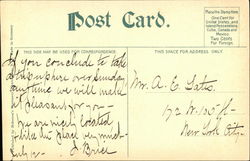 Post Card.
THIS SIDE MAY BE USED FOR CORRESPONDENCE
THIS SPACE FOR ADDRESS ONLY.
Place the Stamp here
One Cent for
United States, and
Island Possessions,
Cuba, Canada and
Mexico.
Two Cents
For Foreign.
If you conclude to take
over Sunday
anytime we will make
it pleasant for you —
we are nicely located
like the place very much
July
Mr. A. E. Gates.
New York City.